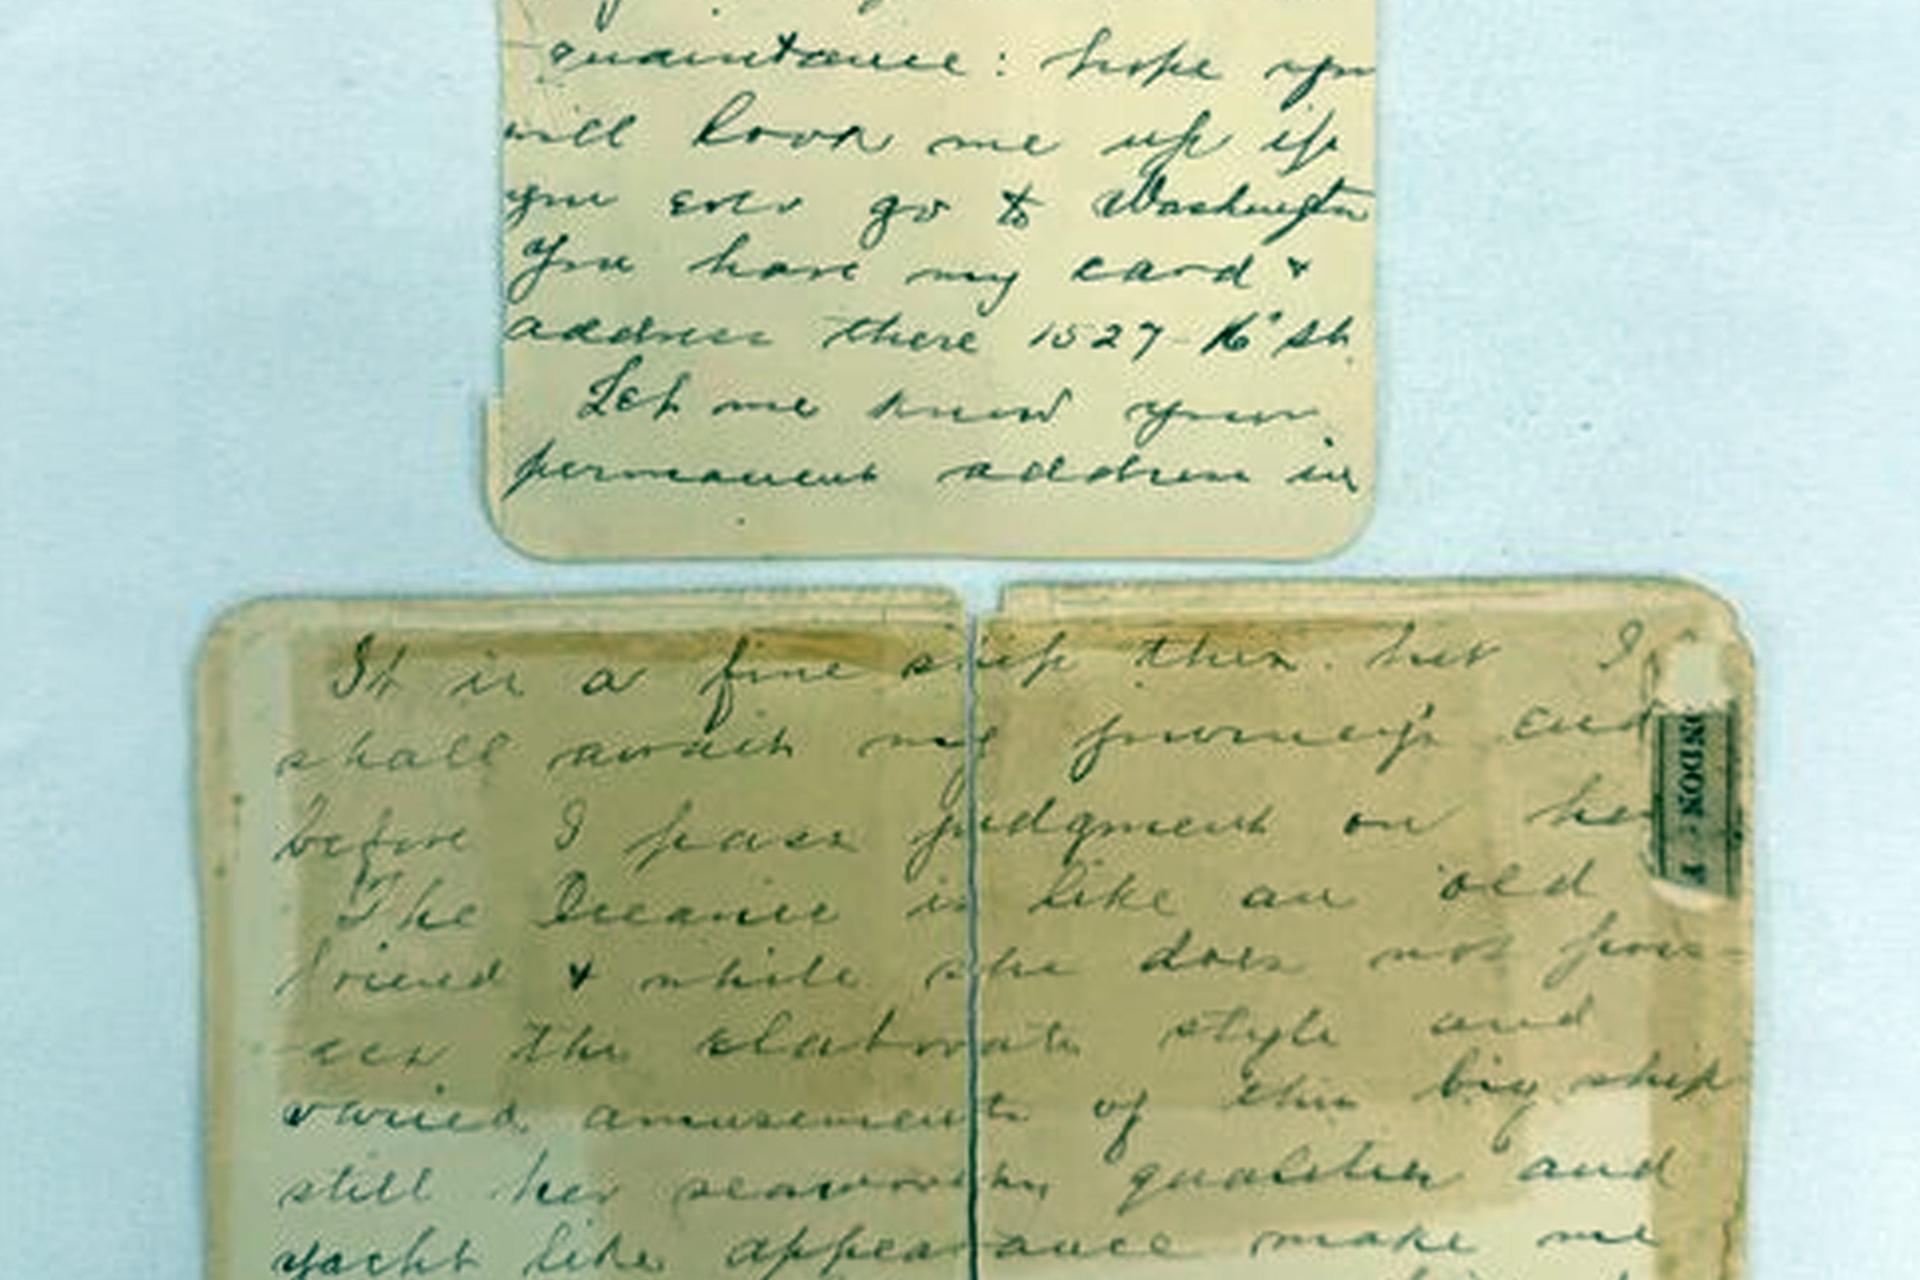 quaintance: hope you
will look me up if
you ever go to Washington
You have my card &
address there 1527-16" St.
Let me know your
permanent address in
It is a fine ship this. but I
shall await my journey's end
before I pass judgment on her
The Oceanic is like an old
friend & while she does not pos-
sess the elaborate style and
varied amusements of this big ship
still her seaworthy qualities and
yacht like appearance make me
NDON